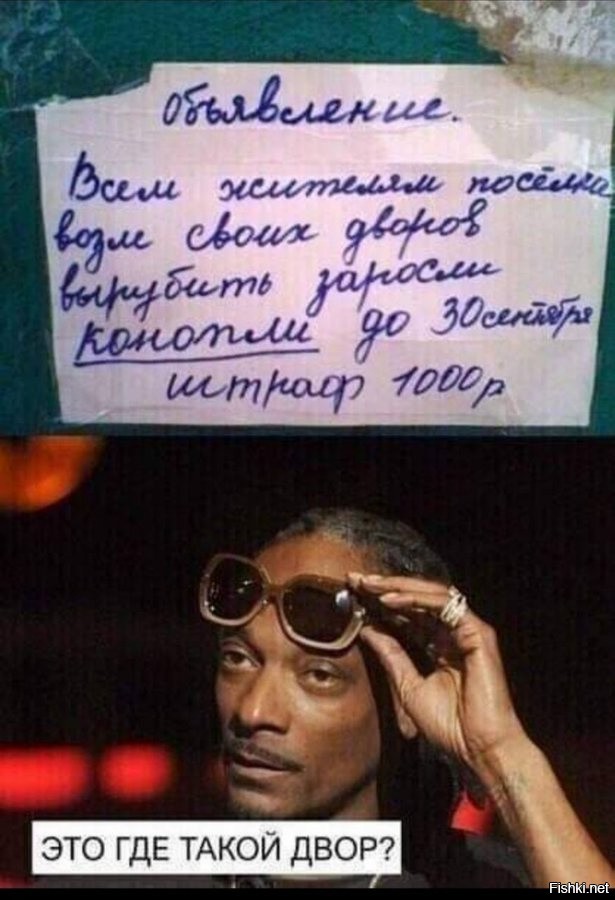 Объявление.
Всем жителям посёлка
возле своих дворов
вырубить заросли
конопли до 30 сентября
штраф 1000 р
ЭТО ГДЕ ТАКОЙ ДВОР?
Fishki.net